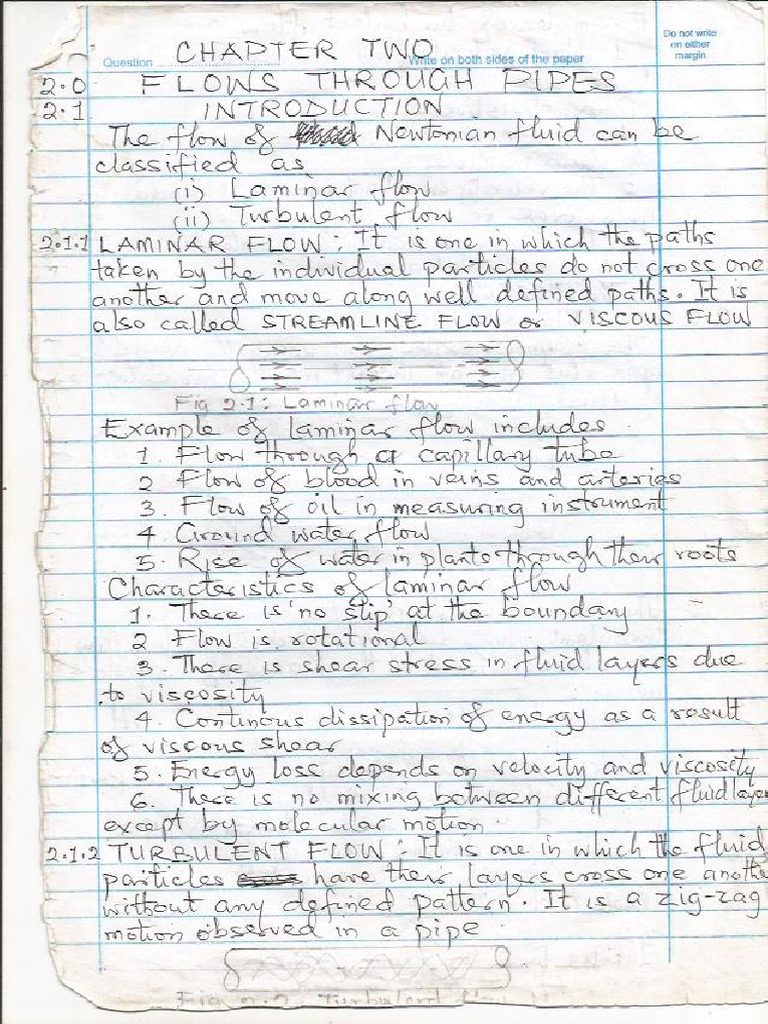 CHAPTER TWO
Question Write on both sides of the paper
Do not write
on either
margin
2.0 FLOWS THROUGH PIPES
2.1 INTRODUCTION
The flow of Newtonian fluid can be
classified as
(i) Laminar flow
(ii) Turbulent flow
2.1.1 LAMINAR FLOW: It is one in which the paths
taken by the individual particles do not cross one
another and move along well defined paths. It is
also called STREAMLINE FLOW or VISCOUS FLOW
Fig 2.1: Laminar flow
Example of laminar flow includes
1. Flow through a capillary tube
2 Flow of blood in veins and arteries
3. Flow of oil in measuring instrument
4 Ground water flow
5. Rise of water in plants through their roots
Characteristics of laminar flow
1. There is 'no slip' at the boundary
2 Flow is rotational
3. There is shear stress in fluid layers due
to viscosity
4. Continous dissipation of energy as a result
of viscous shear
5. Energy loss depends on velocity and viscosity
6. There is no mixing between different fluid layer
except by molecular motion.
2.1.2 TURBULENT FLOW: It is one in which the fluid
particles have their layers cross one anothe
without any defined pattern. It is a zig-zag
motion observed in a pipe
Fig 2.2 Turbulent